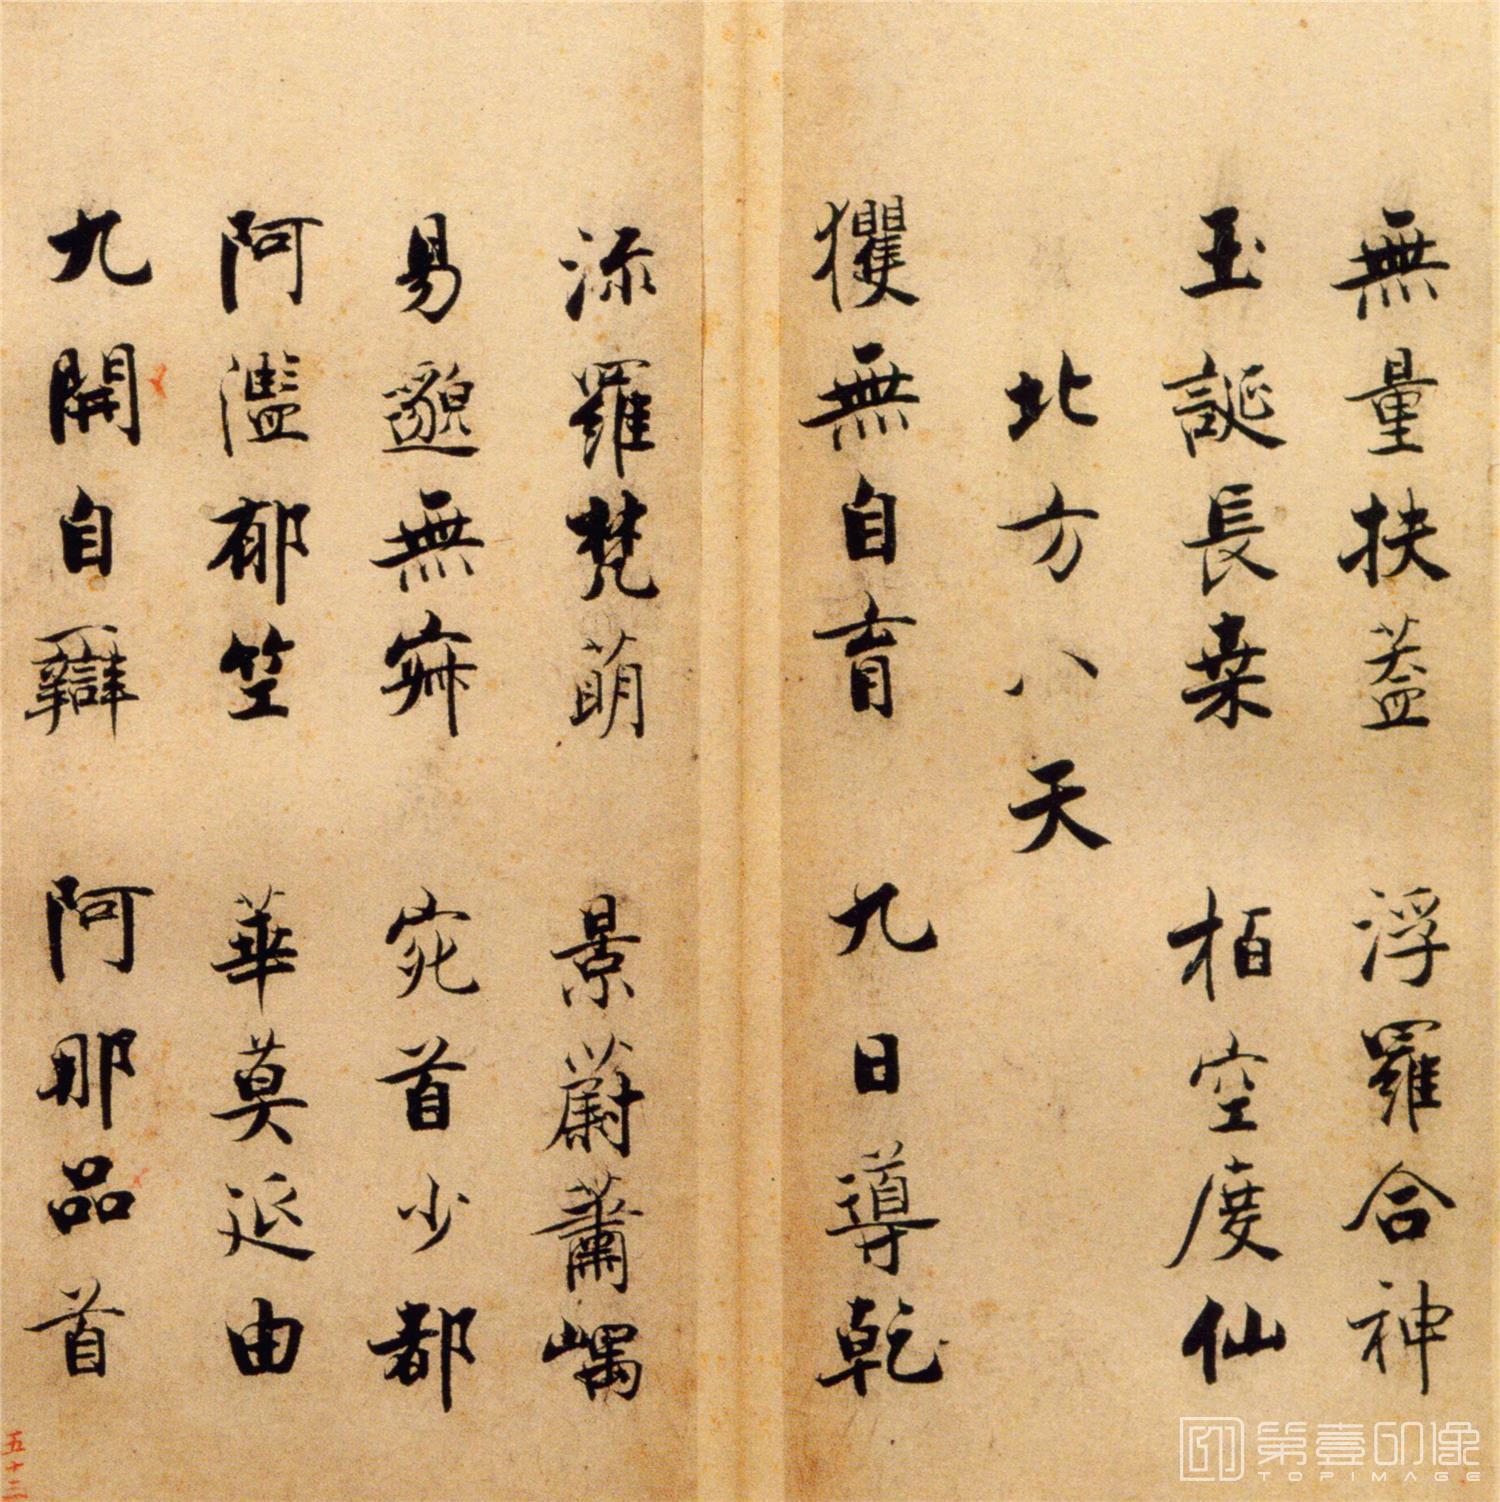 無量扶蓋 浮羅合神
玉誕長桒 栢空度仙
北方八天
玃無自育 九日導乾
流羅梵萌 景蔚蕭嵎
易邈無寂 宛首少都
阿濫郁竺 華莫延由
九開自辯 阿那品首
五十三
第壹印像
TOPIMAGE